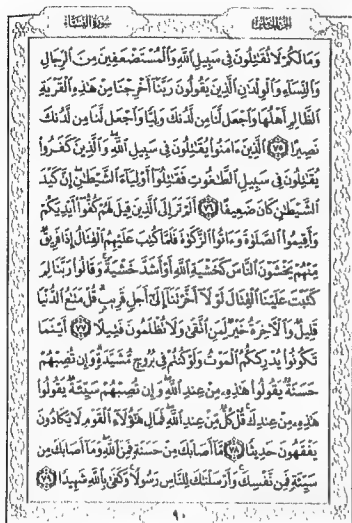 سورة النساء
الجزء الخامس
وَمَا لَكُمْ لَا تُقَٰتِلُونَ فِى سَبِيلِ ٱللَّهِ وَٱلْمُسْتَضْعَفِينَ مِنَ ٱلرِّجَالِ
وَٱلنِّسَآءِ وَٱلْوِلْدَٰنِ ٱلَّذِينَ يَقُولُونَ رَبَّنَآ أَخْرِجْنَا مِنْ هَٰذِهِ ٱلْقَرْيَةِ
ٱلظَّالِمِ أَهْلُهَا وَٱجْعَل لَّنَا مِن لَّدُنكَ وَلِيًّا وَٱجْعَل لَّنَا مِن لَّدُنكَ
نَصِيرًا ۝٧٥ ٱلَّذِينَ ءَامَنُوا۟ يُقَٰتِلُونَ فِى سَبِيلِ ٱللَّهِ ۖ وَٱلَّذِينَ كَفَرُوا۟
يُقَٰتِلُونَ فِى سَبِيلِ ٱلطَّٰغُوتِ فَقَٰتِلُوٓا۟ أَوْلِيَآءَ ٱلشَّيْطَٰنِ ۖ إِنَّ كَيْدَ
ٱلشَّيْطَٰنِ كَانَ ضَعِيفًا ۝٧٦ أَلَمْ تَرَ إِلَى ٱلَّذِينَ قِيلَ لَهُمْ كُفُّوٓا۟ أَيْدِيَكُمْ
وَأَقِيمُوا۟ ٱلصَّلَوٰةَ وَءَاتُوا۟ ٱلزَّكَوٰةَ فَلَمَّا كُتِبَ عَلَيْهِمُ ٱلْقِتَالُ إِذَا فَرِيقٌ
مِّنْهُمْ يَخْشَوْنَ ٱلنَّاسَ كَخَشْيَةِ ٱللَّهِ أَوْ أَشَدَّ خَشْيَةً ۚ وَقَالُوا۟ رَبَّنَا لِمَ
كَتَبْتَ عَلَيْنَا ٱلْقِتَالَ لَوْلَآ أَخَّرْتَنَآ إِلَىٰٓ أَجَلٍ قَرِيبٍ ۗ قُلْ مَتَٰعُ ٱلدُّنْيَا
قَلِيلٌ وَٱلْءَاخِرَةُ خَيْرٌ لِّمَنِ ٱتَّقَىٰ وَلَا تُظْلَمُونَ فَتِيلًا ۝٧٧ أَيْنَمَا
تَكُونُوا۟ يُدْرِككُّمُ ٱلْمَوْتُ وَلَوْ كُنتُمْ فِى بُرُوجٍ مُّشَيَّدَةٍ ۗ وَإِن تُصِبْهُمْ
حَسَنَةٌ يَقُولُوا۟ هَٰذِهِۦ مِنْ عِندِ ٱللَّهِ ۖ وَإِن تُصِبْهُمْ سَيِّئَةٌ يَقُولُوا۟
هَٰذِهِۦ مِنْ عِندِكَ ۚ قُلْ كُلٌّ مِّنْ عِندِ ٱللَّهِ ۖ فَمَالِ هَٰٓؤُلَآءِ ٱلْقَوْمِ لَا يَكَادُونَ
يَفْقَهُونَ حَدِيثًا ۝٧٨ مَّآ أَصَابَكَ مِنْ حَسَنَةٍ فَمِنَ ٱللَّهِ ۖ وَمَآ أَصَابَكَ مِن
سَيِّئَةٍ فَمِن نَّفْسِكَ ۚ وَأَرْسَلْنَٰكَ لِلنَّاسِ رَسُولًا ۚ وَكَفَىٰ بِٱللَّهِ شَهِيدًا ۝٧٩
٩٠